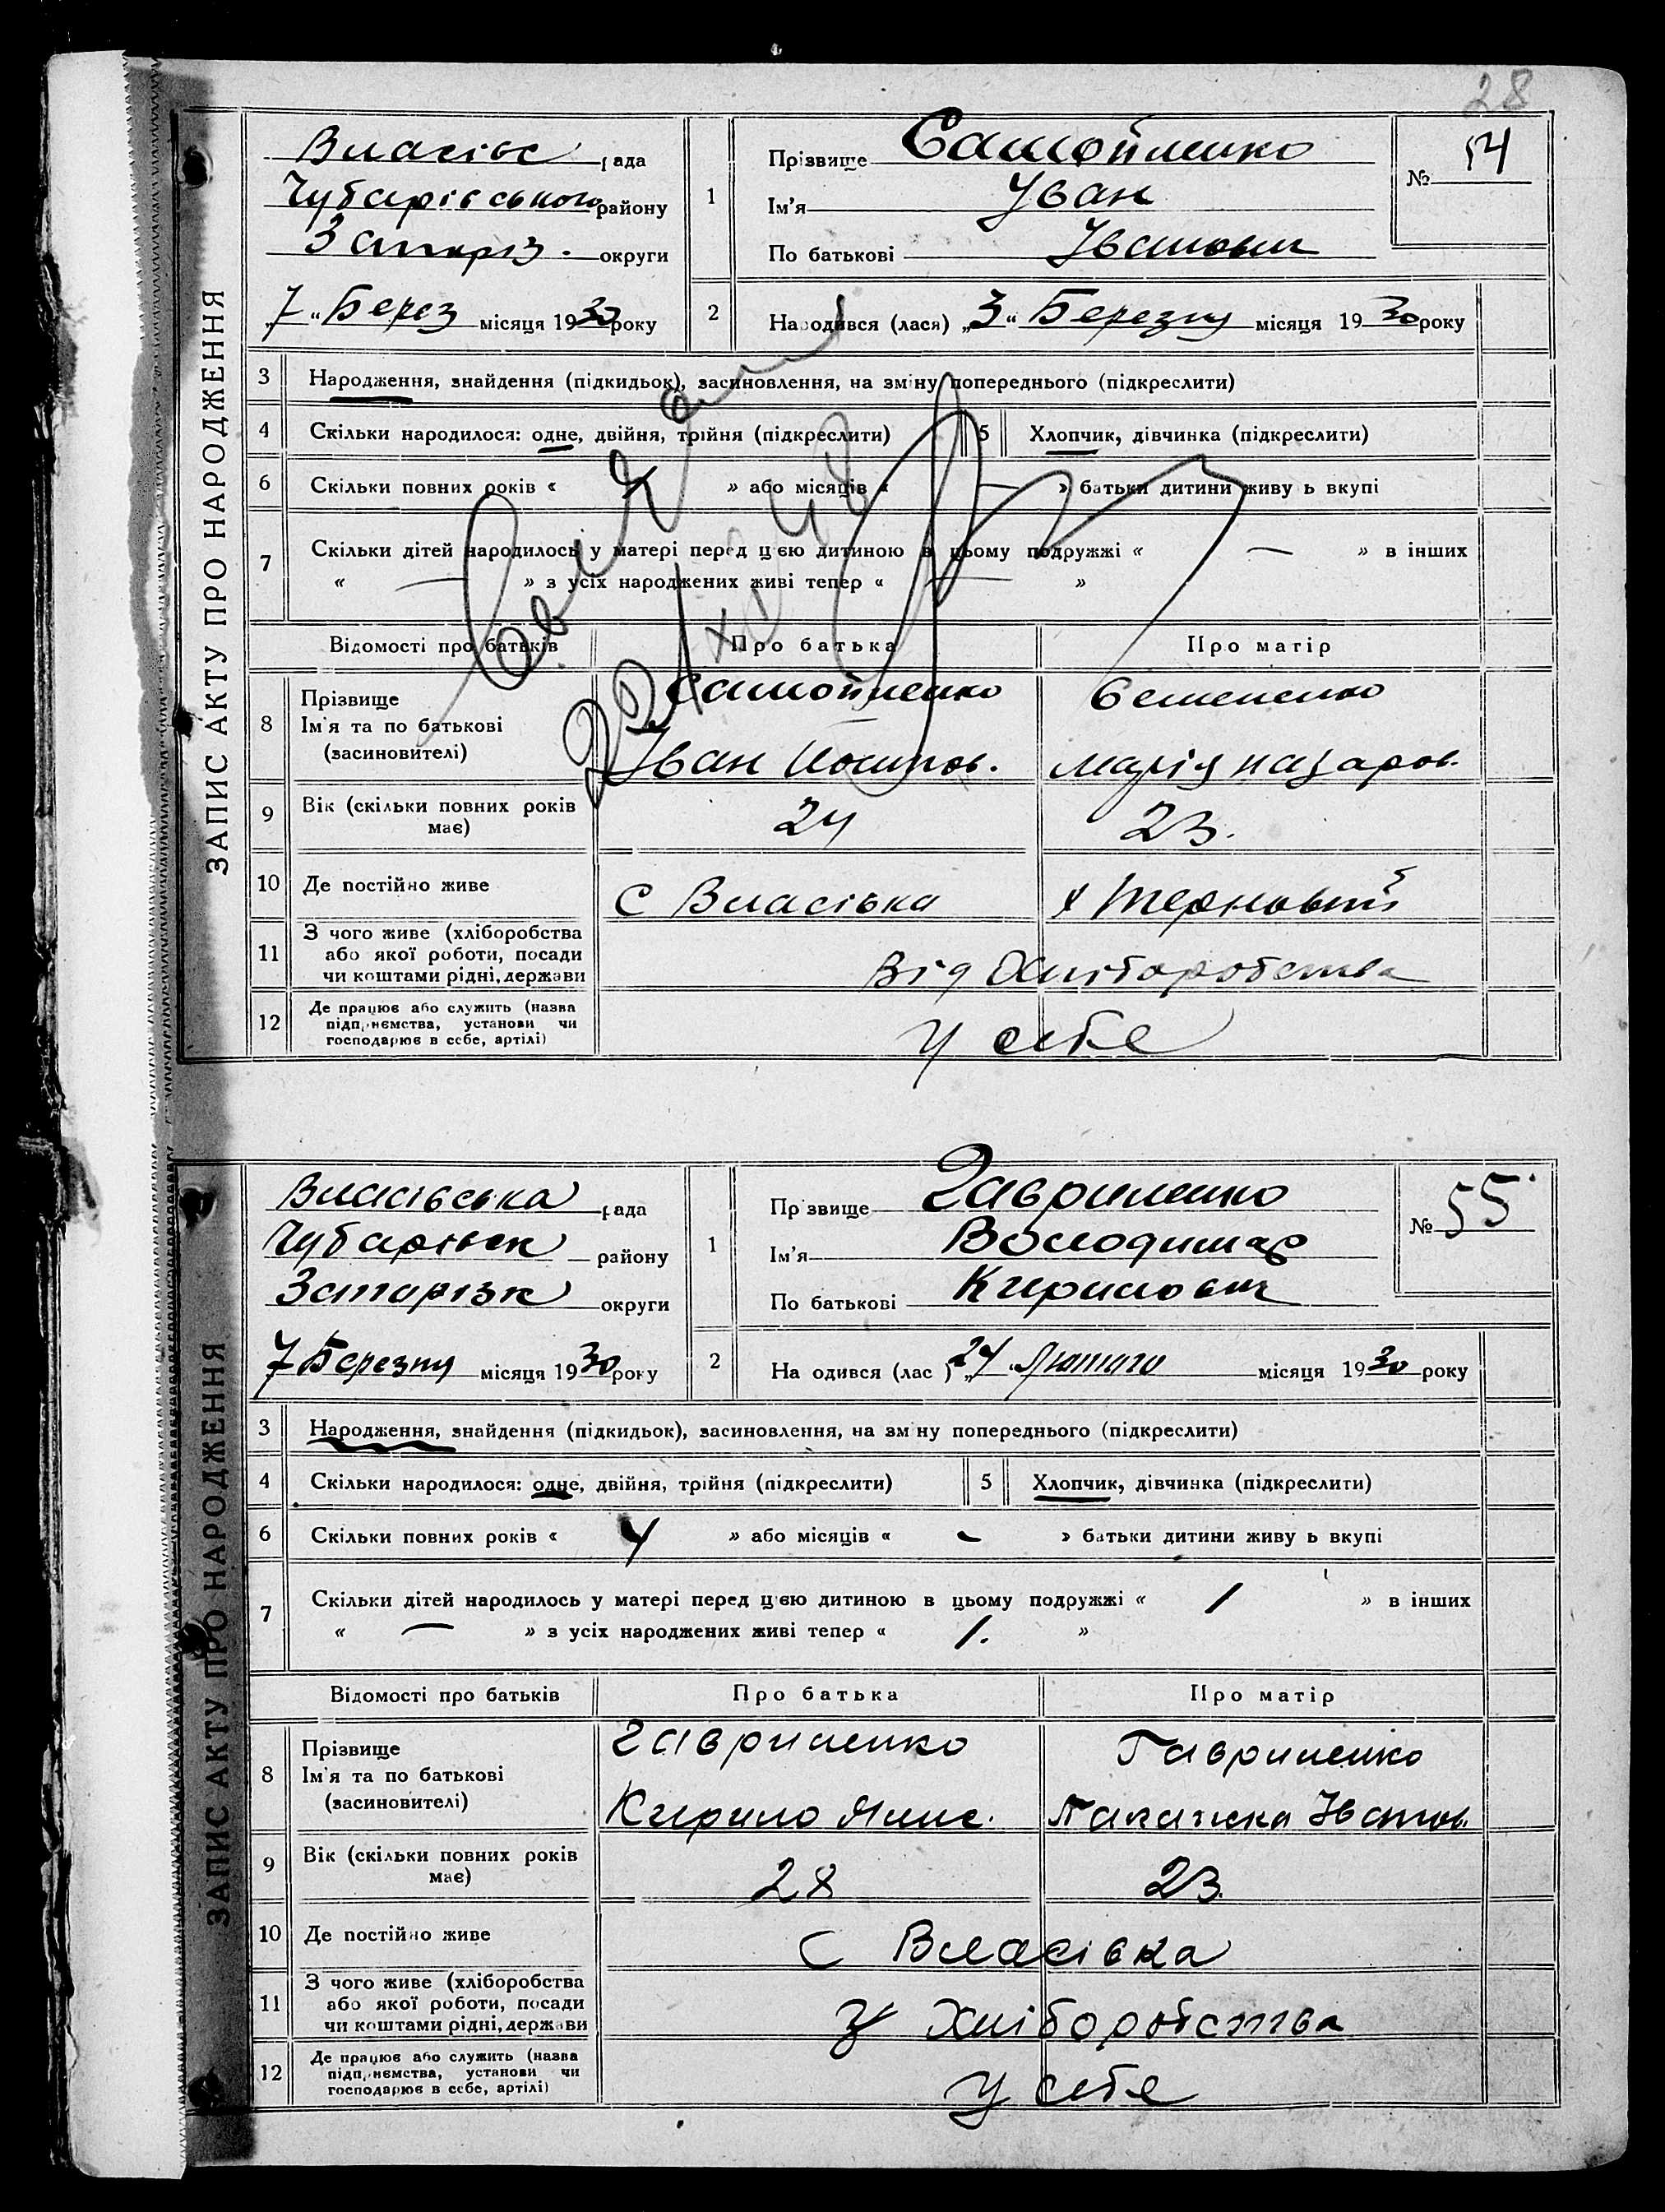 28
ЗАПИС АКТУ ПРО НАРОДЖЕННЯ
Власівс рада
Чубарівського району
Запоріз. округи
„7“ Берез місяця 1930 року
1 Прізвище Самойленко
Ім'я Іван
По батькові Іванович
№ 54
2 Народився (лася) „3“ Березня місяця 1930 року
3 Народження, знайдення (підкидьок), засиновлення, на зміну попереднього (підкреслити)
4 Скільки народилося: одне, двійня, трійня (підкреслити) 5 Хлопчик, дівчинка (підкреслити)
6 Скільки повних років « » або місяців « — » батьки дитини живу ь вкупі
7 Скільки дітей народилось у матері перед цією дитиною в цьому подружжі « — » в інших
« — » з усіх народжених живі тепер « — »
Відомості про батьків Про батька Про матір
8 Прізвище
Ім'я та по батькові
(засиновителі)
Самойленко
Іван
Семененко
Марія Назаров.
9 Вік (скільки повних років
має)
24 23.
10 Де постійно живе С Власівка х Терновий
11 З чого живе (хліборобства
або якої роботи, посади
чи коштами рідні, держави
Від Хліборобства
12 Де працює або служить (назва
підприємства, установи чи
господарює в себе, артілі)
У себе
ЗАПИС АКТУ ПРО НАРОДЖЕННЯ
Власівська рада
Чубарівск району
Запорізк округи
7 Березня місяця 1930 року
1 Прізвище Гавриленко
Ім'я Володимир
По батькові Кирилович
№ 55
2 На одився (лас ) „24“ Лютого місяця 1930 року
3 Народження, знайдення (підкидьок), засиновлення, на зміну попереднього (підкреслити)
4 Скільки народилося: одне, двійня, трійня (підкреслити) 5 Хлопчик, дівчинка (підкреслити)
6 Скільки повних років « 4 » або місяців « - » батьки дитини живу ь вкупі
7 Скільки дітей народилось у матері перед цією дитиною в цьому подружжі « 1 » в інших
« — » з усіх народжених живі тепер « 1. »
Відомості про батьків Про батька Про матір
8 Прізвище
Ім'я та по батькові
(засиновителі)
Гавриленко
Кирило
Гавриленко
Палажка Іванов.
9 Вік (скільки повних років
має)
28 23.
10 Де постійно живе С Власівка
11 З чого живе (хліборобства
або якої роботи, посади
чи коштами рідні, держави
З Хліборобства
12 Де працює або служить (назва
підприємства, установи чи
господарює в себе, артілі)
У себе